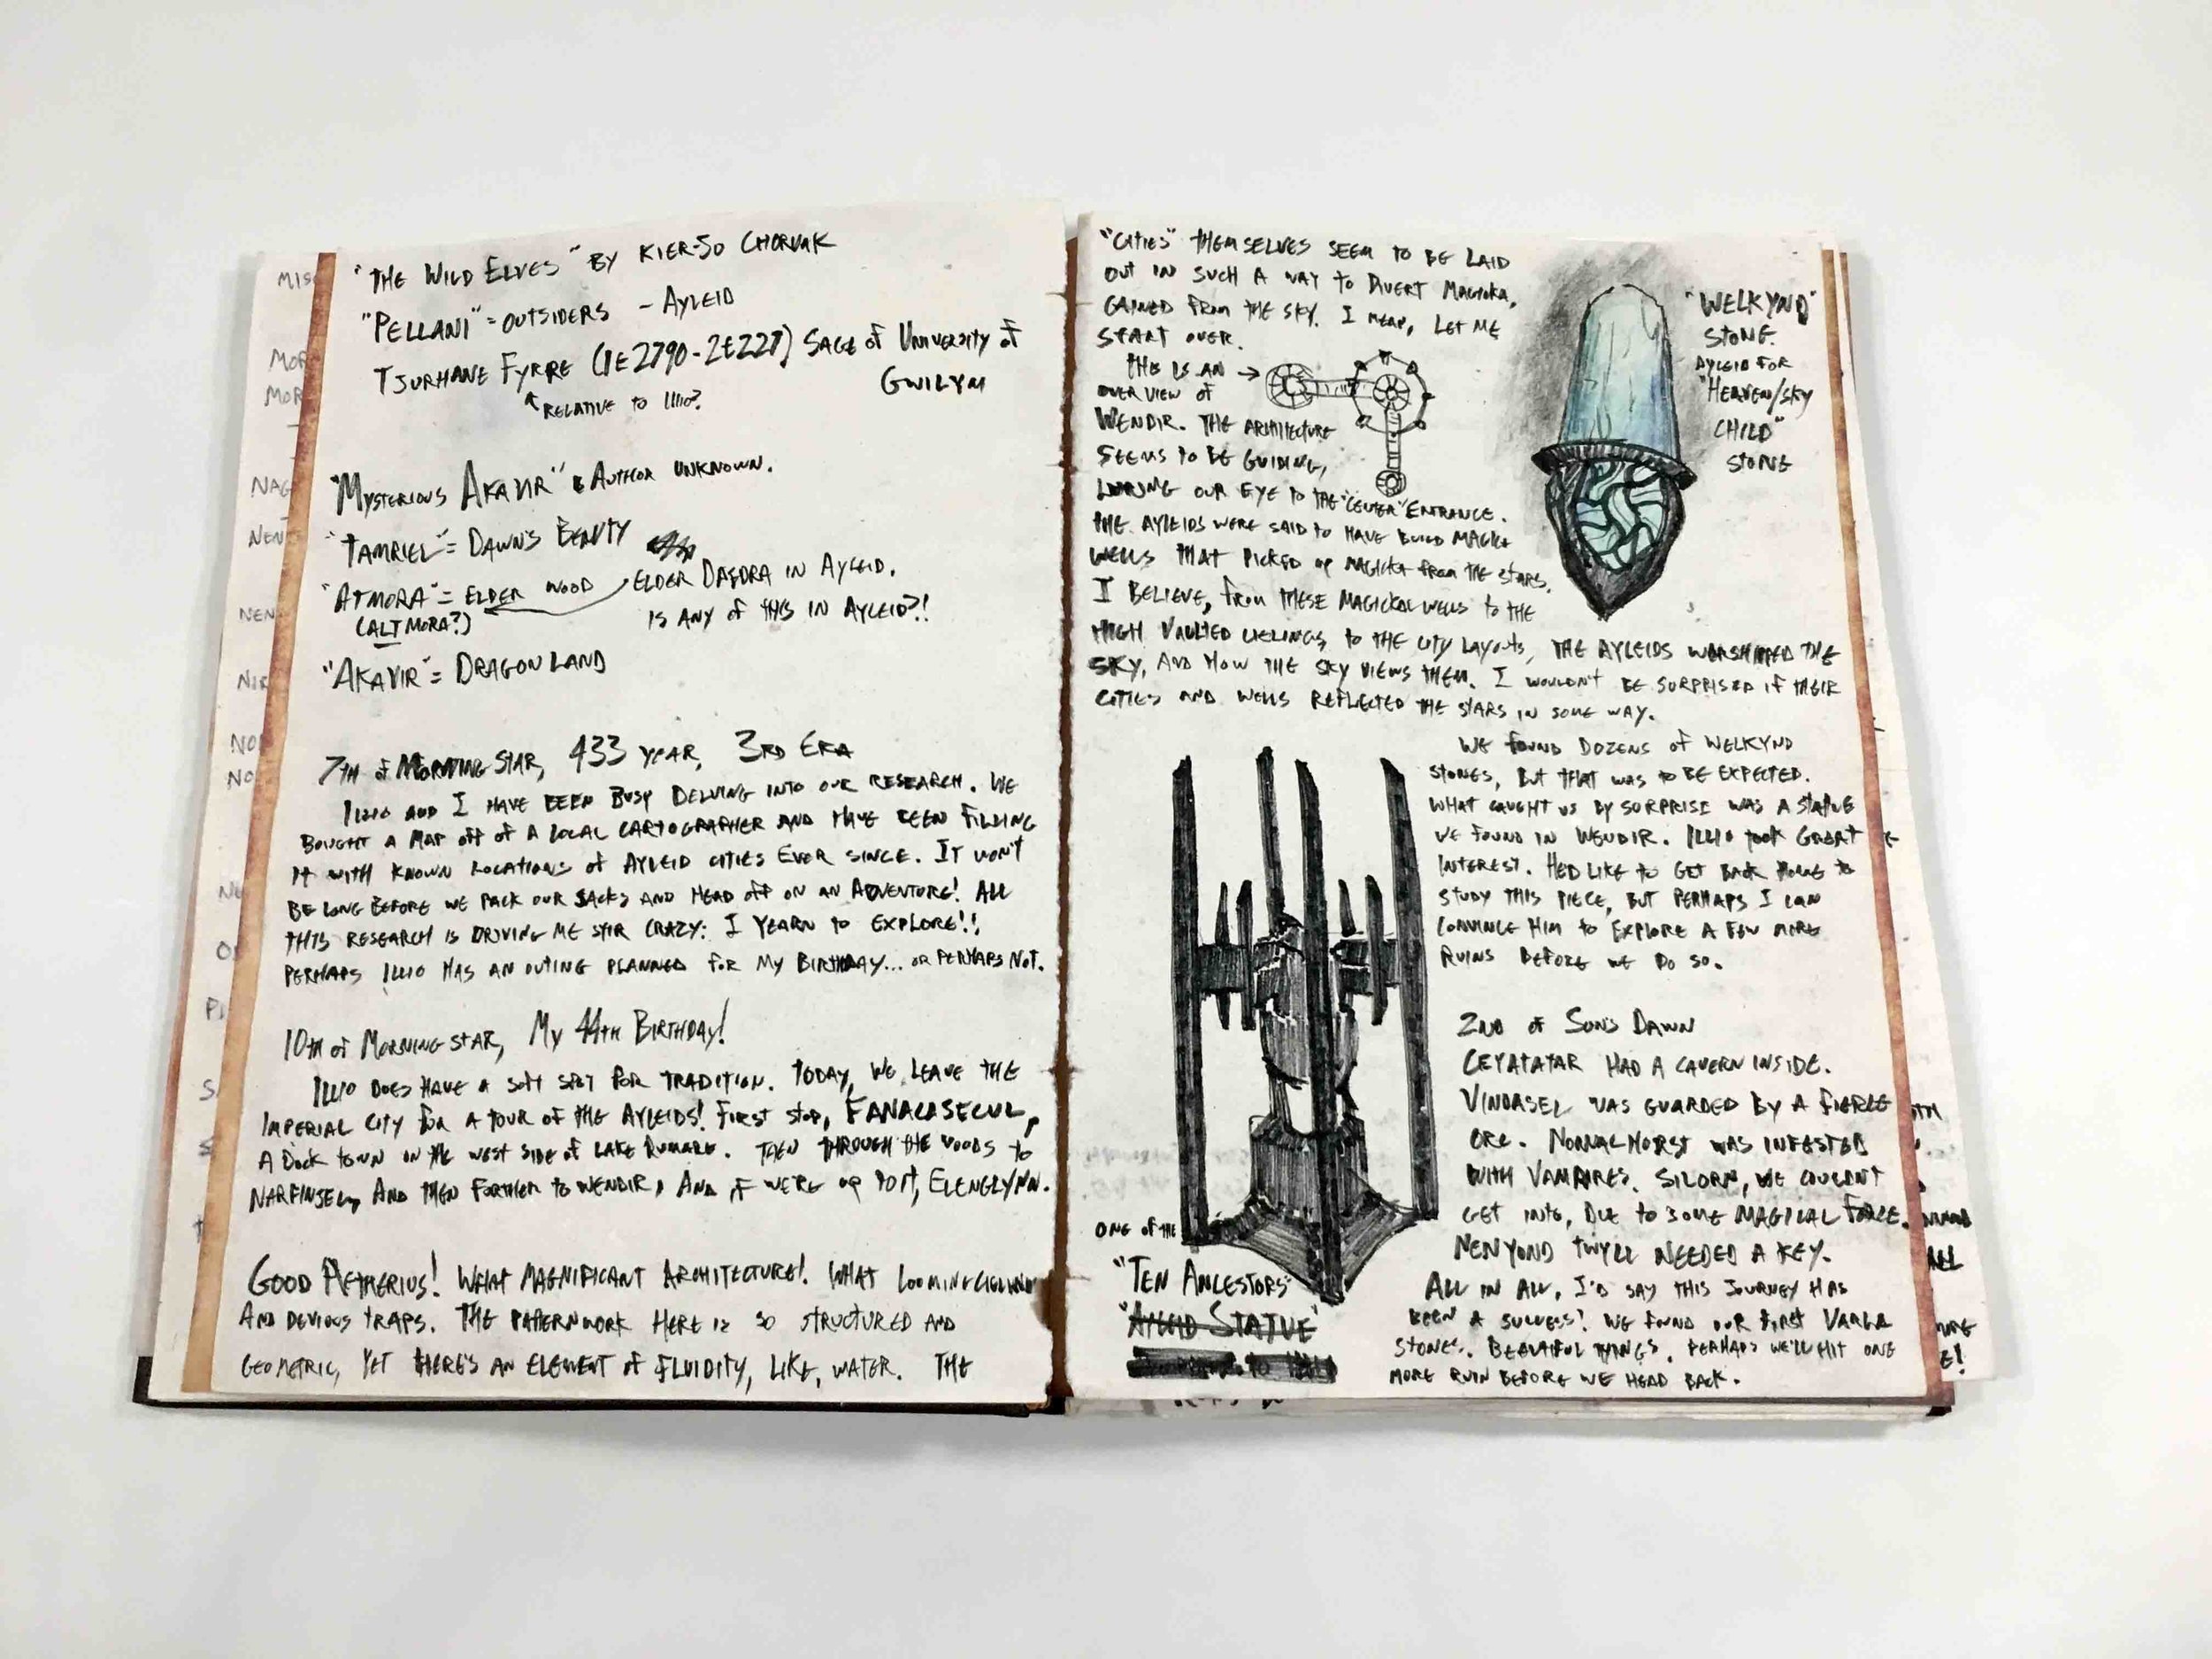 "THE WILD ELVES" BY KIER-JO CHORVAK
"PELLANI" = OUTSIDERS - AYLEID
TJURHANE FYRRE (1E2790-2E227) SAGE OF UNIVERSITY OF
GWILYM
RELATIVE TO ILLIO?
"MYSTERIOUS AKAVIR" AUTHOR UNKNOWN.
"TAMRIEL" = DAWN'S BEAUTY
"ATMORA" = ELDER WOOD ELDER DAEDRA IN AYLEID.
(ALTMORA?) IS ANY OF THIS IN AYLEID?!
"AKAVIR" = DRAGON LAND
7TH OF MORNING STAR, 433 YEAR, 3RD ERA
ILLIO AND I HAVE BEEN BUSY DELVING INTO OUR RESEARCH. WE
BOUGHT A MAP OFF OF A LOCAL CARTOGRAPHER AND HAVE BEEN FILLING
IT WITH KNOWN LOCATIONS OF AYLEID CITIES EVER SINCE. IT WON'T
BE LONG BEFORE WE PACK OUR SACKS AND HEAD OFF ON AN ADVENTURE! ALL
THIS RESEARCH IS DRIVING ME STIR CRAZY: I YEARN TO EXPLORE!!
PERHAPS ILLIO HAS AN OUTING PLANNED FOR MY BIRTHDAY... OR PERHAPS NOT.
10TH OF MORNING STAR, MY 44TH BIRTHDAY!
ILLIO DOES HAVE A SOFT SPOT FOR TRADITION. TODAY, WE LEAVE THE
IMPERIAL CITY FOR A TOUR OF THE AYLEIDS! FIRST STOP, FANACASECUL,
A DOCK TOWN ON THE WEST SIDE OF LAKE RUMARE. THEN THROUGH THE WOODS TO
NARFINSEL, AND THEN FURTHER TO WENDIR, AND IF WE'RE UP TO IT, ELENGLYNN.
GOOD AETHERIUS! WHAT MAGNIFICANT ARCHITECTURE! WHAT LOOMING
AND DEVIOUS TRAPS. THE PATTERNWORK HERE IS SO STRUCTURED AND
GEOMETRIC, YET THERE'S AN ELEMENT OF FLUIDITY, LIKE, WATER. THE
"CITIES" THEMSELVES SEEM TO BE LAID
OUT IN SUCH A WAY TO DIVERT MAGICKA,
GAINED FROM THE SKY. I MEAN, LET ME
START OVER.
THIS IS AN
OVERVIEW OF
WENDIR. THE ARCHITECTURE
SEEMS TO BE GUIDING,
LURING OUR EYE TO THE "CENTER" ENTRANCE.
THE AYLEIDS WERE SAID TO HAVE BUILD MAGICK
WELLS THAT PICKED UP MAGICKA FROM THE STARS.
I BELIEVE, FROM THESE MAGICKAL WELLS TO THE
HIGH VAULTED CIELINGS TO THE CITY LAYOUTS, THE AYLEIDS WORSHIPPED THE
SKY, AND HOW THE SKY VIEWS THEM. I WOULDN'T BE SURPRISED IF THEIR
CITIES AND WELLS REFLECTED THE STARS IN SOME WAY.
"WELKYND"
STONE.
AYLEID FOR
"HEAVEN/SKY
CHILD"
STONE
WE FOUND DOZENS OF WELKYND
STONES, BUT THAT WAS TO BE EXPECTED.
WHAT CAUGHT US BY SURPRISE WAS A STATUE
WE FOUND IN WENDIR. ILLIO TOOK GREAT
INTEREST. HE'D LIKE TO GET BACK HOME TO
STUDY THIS PIECE, BUT PERHAPS I CAN
CONVINCE HIM TO EXPLORE A FEW MORE
RUINS BEFORE WE DO SO.
2ND OF SUN'S DAWN
CEYATATAR HAD A CAVERN INSIDE.
VINDASEL WAS GUARDED BY A FIERCE
ORC. NORNALHORST WAS INFESTED
WITH VAMPIRES. SILORN, WE COULDN'T
GET INTO, DUE TO SOME MAGICAL FORCE.
NENYOND TWYLL NEEDED A KEY.
ALL IN ALL, I'D SAY THIS JOURNEY HAS
BEEN A SUCCESS! WE FOUND OUR FIRST VARLA
STONES. BEAUTIFUL THINGS. PERHAPS WE'LL HIT ONE
MORE RUIN BEFORE WE HEAD BACK.
ONE OF THE
"TEN ANCESTORS"
"AYLEID STATUE"